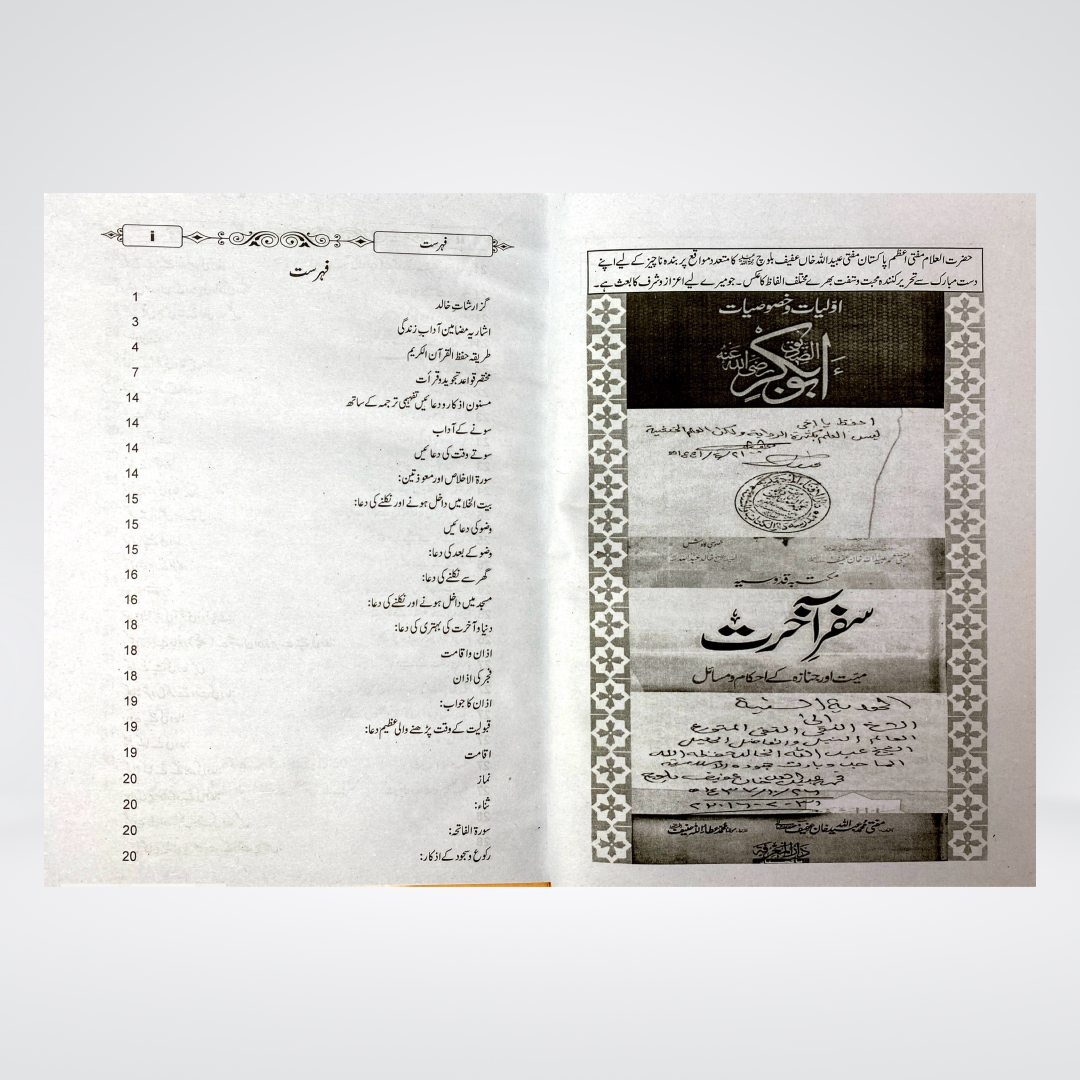 حضرت العلام مفتی اعظم پاکستان مفتی عبیداللہ خاں عفیف بلوچ کا متعدد مواقع پر بندہ ناچیز کے لیے اپنے
دست مبارک سے تحریر کنندہ محبت و شفقت بھرے مختلف الفاظ کا عکس۔ جو میرے لیے اعزاز و شرف کا باعث ہے۔
اوّلیات و خصوصیات
ابوبکر الصدیق رضی اللہ عنہ
احفظ یا اخی
لیس العلم بکثرة الروایة ولکن العلم الخشیة
مکتبہ قدوسیہ
سفرِ آخرت
میّت اور جنازہ کے احکام و مسائل
الشیخ عبد اللہ الخالد حفظہ اللہ
دار المعرفة
فہرست i
فہرست
گزارشاتِ خالد 1
اشاریہ مضامین آداب زندگی 3
طریقہ حفظ القرآن الکریم 4
مختصر قواعد تجوید و قرأت 7
مسنون اذکار و دعائیں تفہیمی ترجمہ کے ساتھ 14
سونے کے آداب 14
سوتے وقت کی دعائیں 14
سورۃ الاخلاص اور معوذتین: 14
بیت الخلا میں داخل ہونے اور نکلنے کی دعا: 15
وضو کی دعائیں 15
وضو کے بعد کی دعا: 15
گھر سے نکلنے کی دعا: 16
مسجد میں داخل ہونے اور نکلنے کی دعا: 16
دنیا و آخرت کی بہتری کی دعا: 18
اذان واقامت 18
فجر کی اذان 18
اذان کا جواب: 19
قبولیت کے وقت پڑھنے والی عظیم دعا: 19
اقامت 19
نماز 20
ثناء: 20
سورۃ الفاتحہ: 20
رکوع و سجود کے اذکار: 20